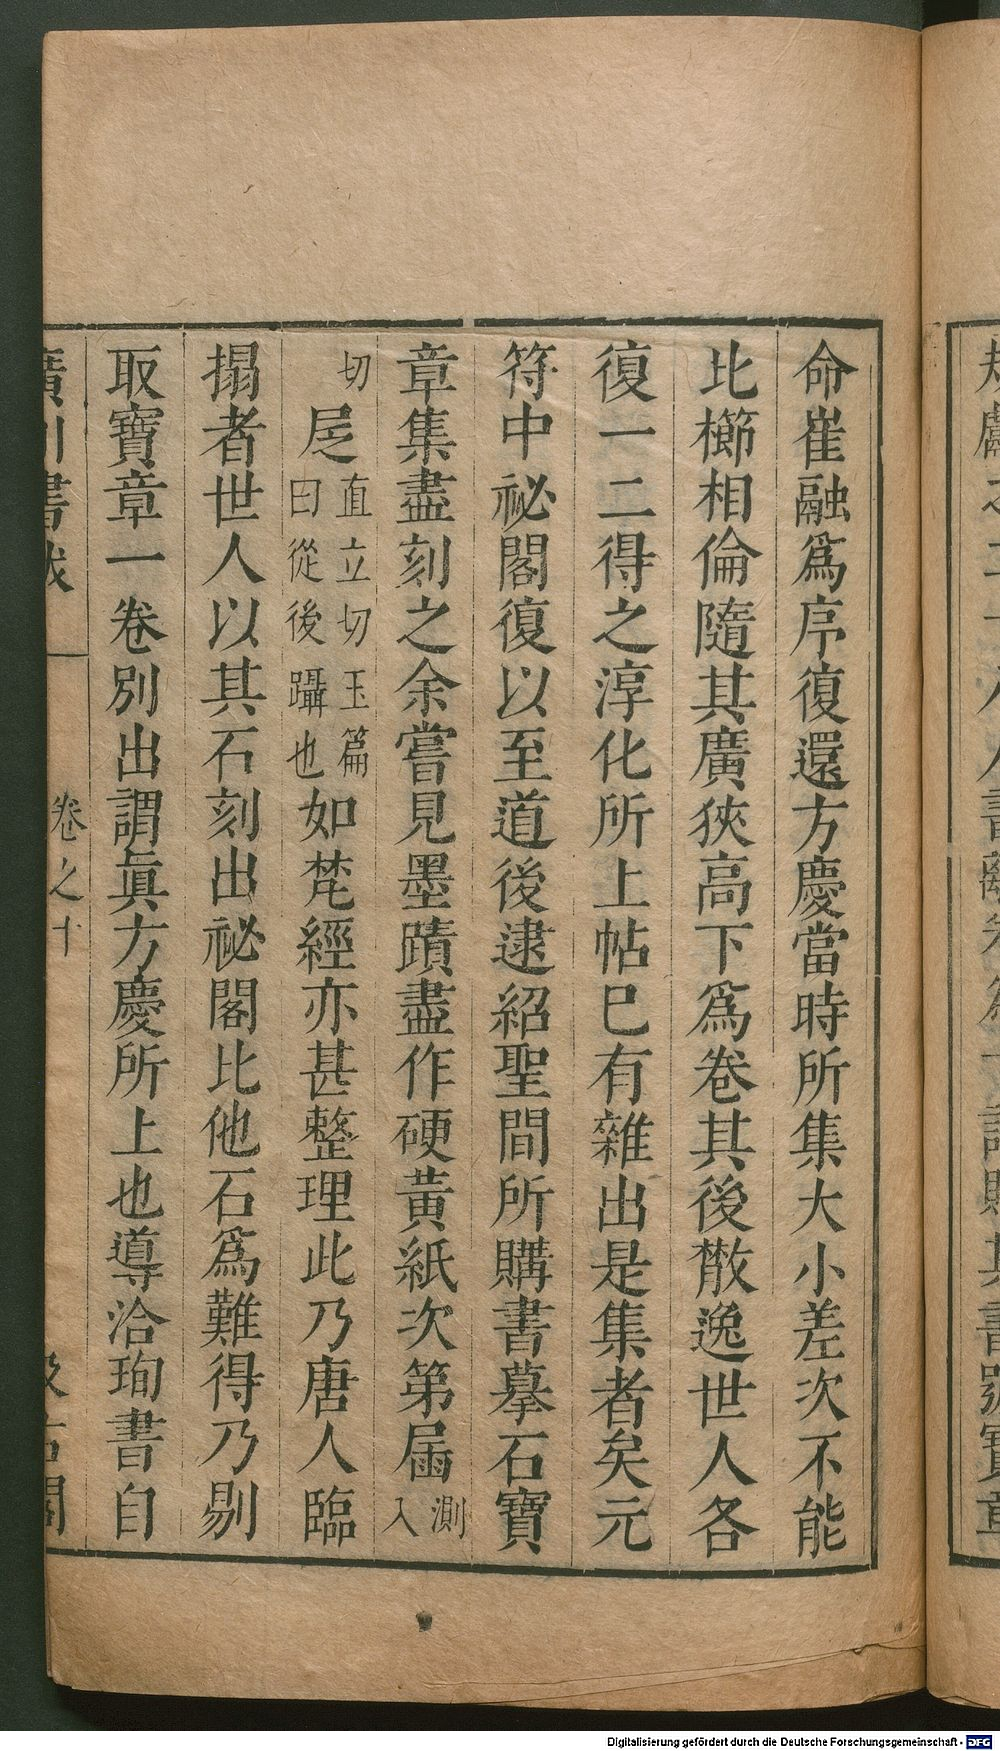 命崔融爲序復還方慶當時所集大小差次不能
比櫛相倫隨其廣狹高下爲卷其後散逸世人各
復一二得之淳化所上帖巳有雜出是集者矣元
符中祕閣復以至道後逮紹聖間所購書摹石寶
章集盡刻之余嘗見墨蹟盡作硬黃紙次第屇測入
切㞏直立切玉篇曰從後躡也如梵經亦甚整理此乃唐人臨
搨者世人以其石刻出祕閣比他石爲難得乃剔
取寶章一卷別出謂眞方慶所上也導洽珣書自
廣川書跋
卷之十
汲古閣
Digitalisierung gefördert durch die Deutsche Forschungsgemeinschaft - DFG